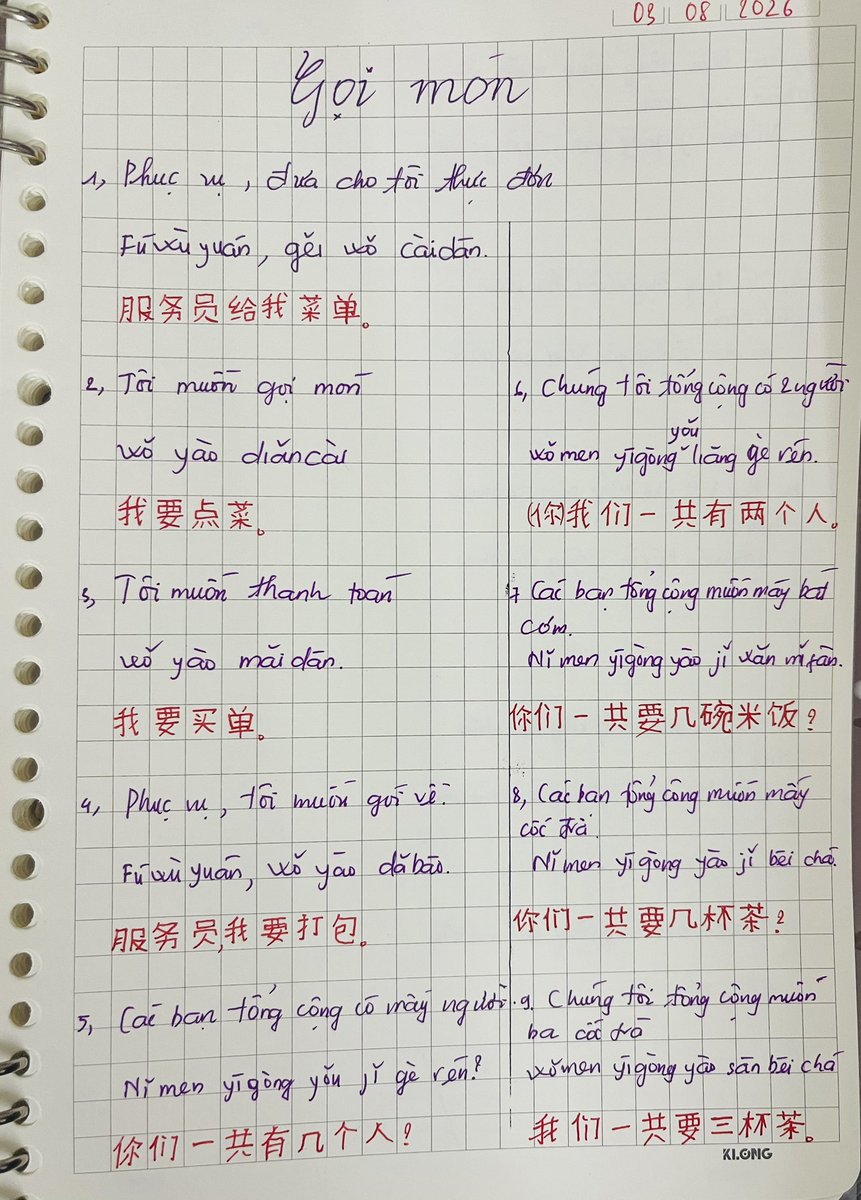 03 08 2026
Gọi món
1, Phục vụ, đưa cho tôi thực đơn
Fúwùyuán, gěi wǒ càidān.
服务员给我菜单。
2, Tôi muốn gọi món
wǒ yào diǎncài
我要点菜。
3, Tôi muốn thanh toán
wǒ yào mǎidān.
我要买单。
4, Phục vụ, tôi muốn gói về.
Fúwùyuán, wǒ yào dǎbāo.
服务员,我要打包。
5, Các bạn tổng cộng có mấy người.
Nǐmen yīgòng yǒu jǐ gè rén?
你们一共有几个人?
6, Chúng tôi tổng cộng có 2 người
yǒu
wǒmen yīgòng liǎng gè rén.
(你)我们一共有两个人。
7 Các bạn tổng cộng muốn mấy bát
cơm.
Nǐmen yīgòng yào jǐ wǎn mǐfàn.
你们一共要几碗米饭?
8, Các bạn tổng cộng muốn mấy
cốc trà.
Nǐmen yīgòng yào jǐ bēi chá.
你们一共要几杯茶?
9, Chúng tôi tổng cộng muốn
ba cốc trà
wǒmen yīgòng yào sān bēi chá
我们一共要三杯茶。
KLONG